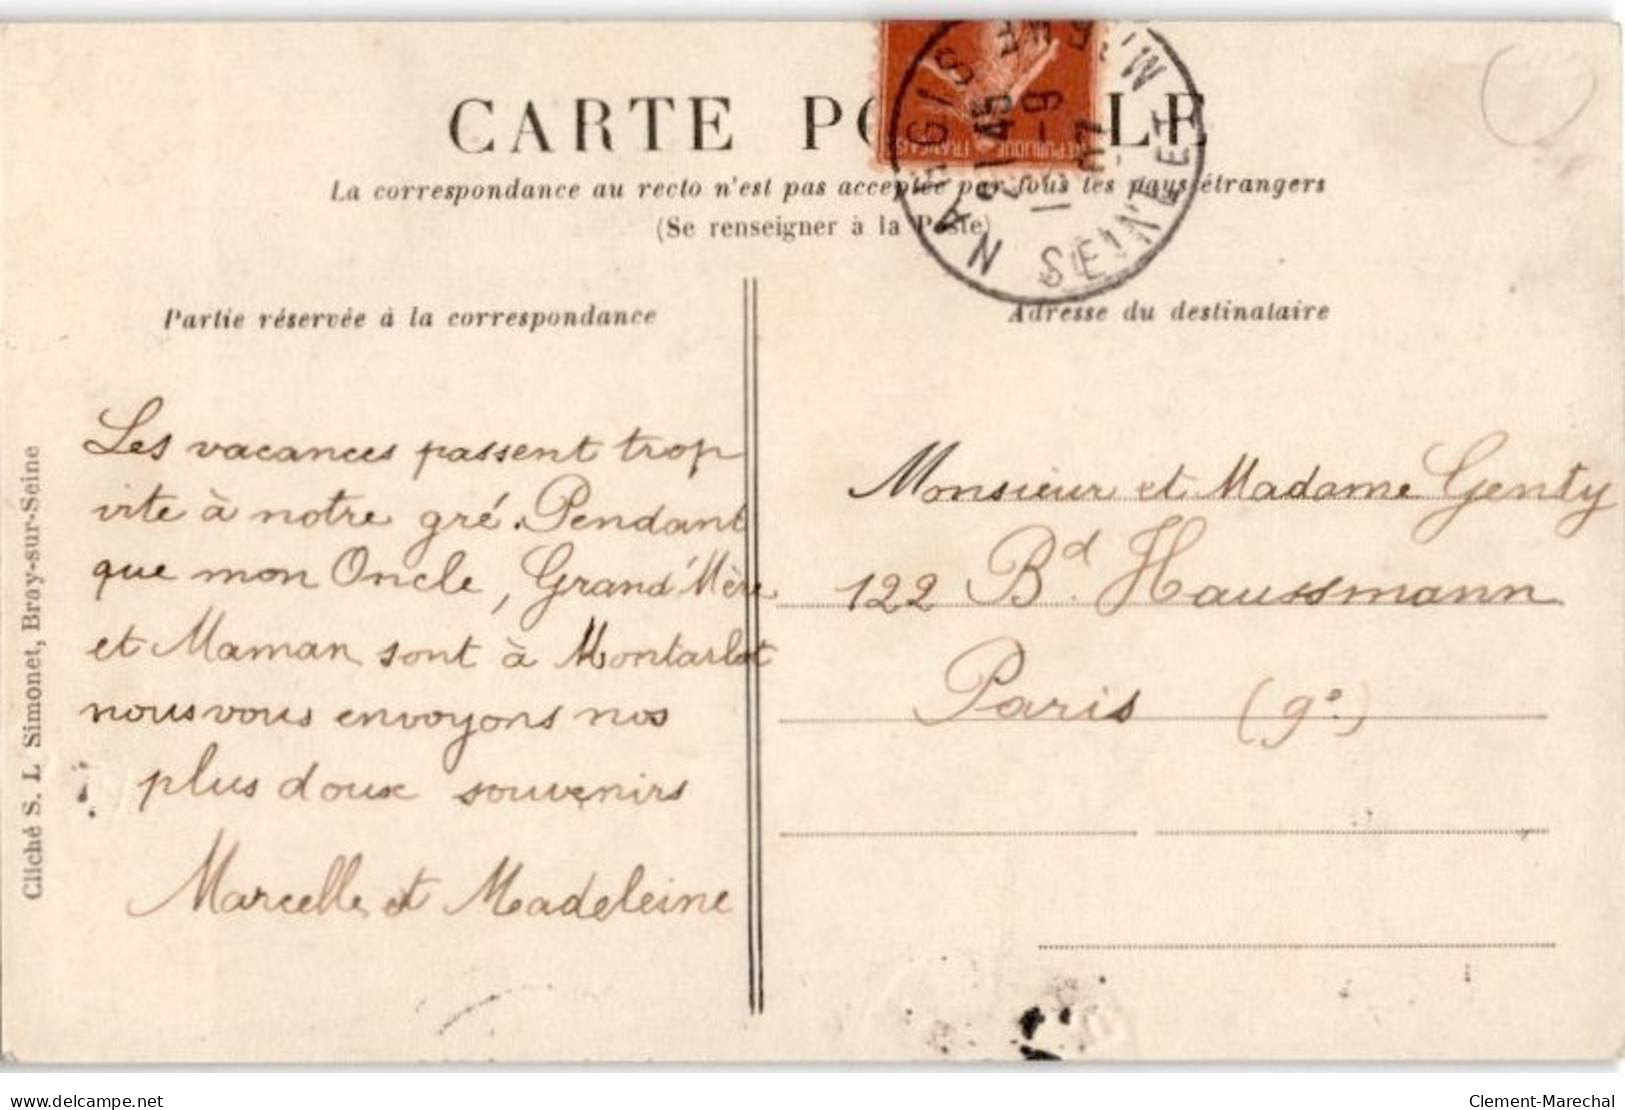 CARTE POSTALE
La correspondance au recto n'est pas acceptée par tous les pays étrangers
(Se renseigner à la Poste)
NANGIS
SEINE ET M
RÉPUBLIQUE FRANÇAISE
Partie réservée à la correspondance
Les vacances passent trop
vite à notre gré. Pendant
que mon Oncle, Grand'Mère
et Maman sont à Montarlot
nous vous envoyons nos
plus doux souvenirs
Marcelle et Madeleine
Adresse du destinataire
Monsieur et Madame Genty
122 Bd. Haussmann
Paris (9e.)
Cliché S. L Simonet, Bray-sur-Seine
www.delcampe.net
Clement-Marechal